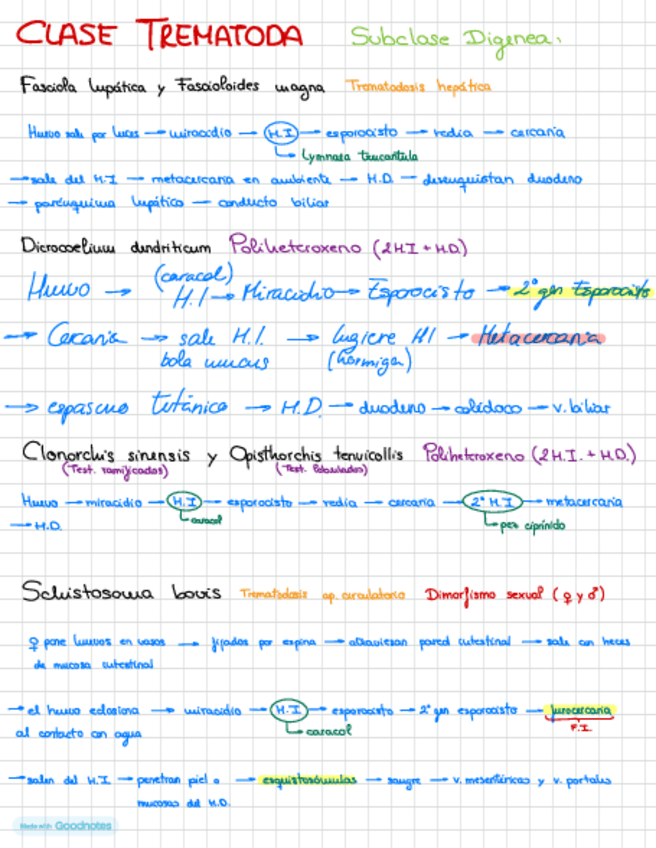 CLASE TREMATODA Subclase Digenea.
Fasciola hepática y Fascioloides magna Trematodosis hepática
Huevo sale por heces → miracidio → H.I → esporocisto → redia → cercaria
Lymnaea truncatula
→ sale del H.I → metacercaria en ambiente → H.D. → desenquistan duodeno
→ parénquima hepático → conducto biliar
Dicrocoelium dendriticum Poliheteroxeno (2H.I + H.D.)
Huevo → (caracol) H.I → Miracidio → Esporocisto → 2ª gen Esporocisto
→ Cercaria → sale H.I. → Ingiere HI → Metacercaria
bola mucus (hormiga)
→ espasmo tetánico → H.D. → duodeno → colédoco → v. biliar
Clonorchis sinensis y Opisthorchis tenuicollis Poliheteroxeno (2 H.I. + H.D.)
(Test. ramificados) (Test. lobulados)
Huevo → miracidio → H.I → esporocisto → redia → cercaria → 2º H.I → metacercaria
→ H.D. caracol pez ciprínido
Schistosoma bovis Trematodosis ap. circulatorio Dimorfismo sexual (♀ y ♂)
♀ pone huevos en vasos → fijados por espina → atraviesan pared intestinal → sale con heces
de mucosa intestinal
→ el huevo eclosiona → miracidio → H.I → esporocisto → 2ª gen esporocisto → furocercaria
al contacto con agua caracol F.I.
→ salen del H.I → penetran piel o → esquistosómulas → sangre → v. mesentéricas y v. portales
mucosas del H.D.
Made with Goodnotes